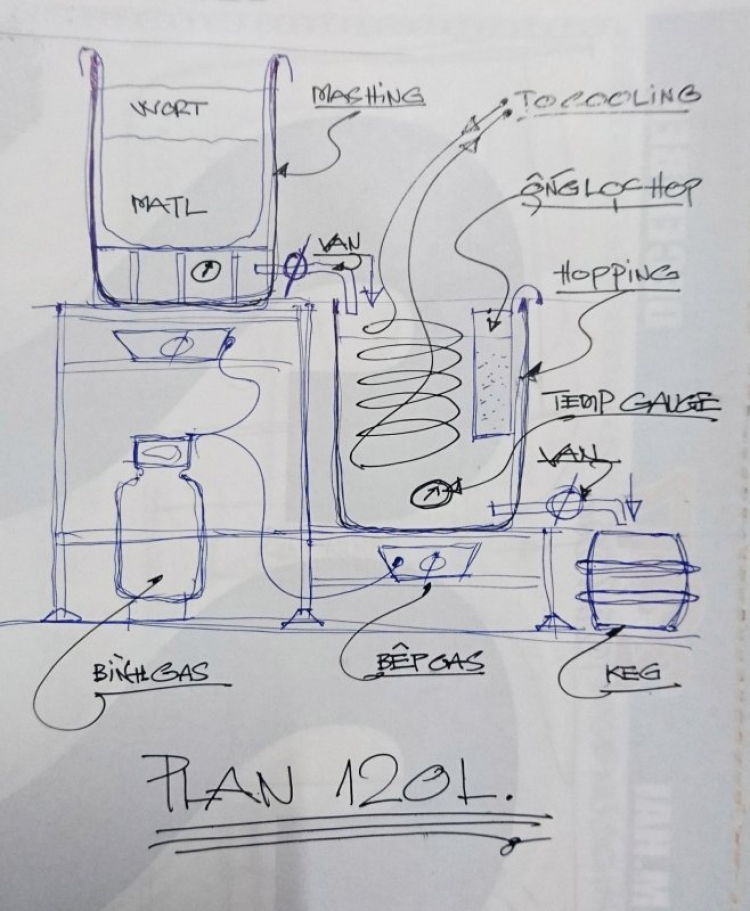 WORT
MASHING
TO COOLING
MATL
ỐNG LỌC HOP
VAN
HOPPING
TEMP GAUGE
VAN
BÌNH GAS
BẾP GAS
KEG
PLAN 120L.